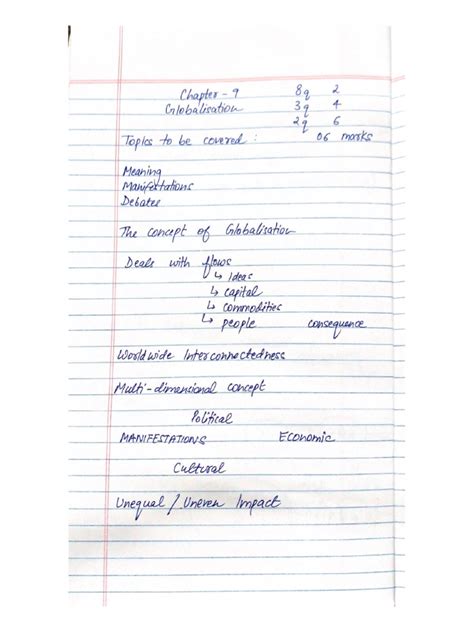 Chapter - 9 8q 2
Globalisation 3q 4
2q 6
Topics to be covered : 06 marks
Meaning
Manifestations
Debates
The concept of Globalisation
Deals with flows
↳ Ideas
↳ capital
↳ commodities
↳ people consequence
Worldwide Interconnectedness
Multi-dimensional concept
Political
MANIFESTATIONS Economic
Cultural
Unequal / Uneven Impact